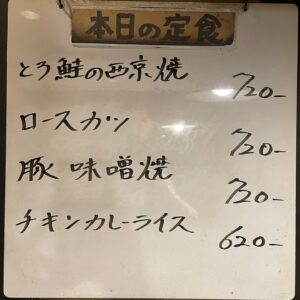 本日の定食
とろ鮭の西京焼 720-
ロースカツ 720-
豚味噌焼 720-
チキンカレーライス 620-